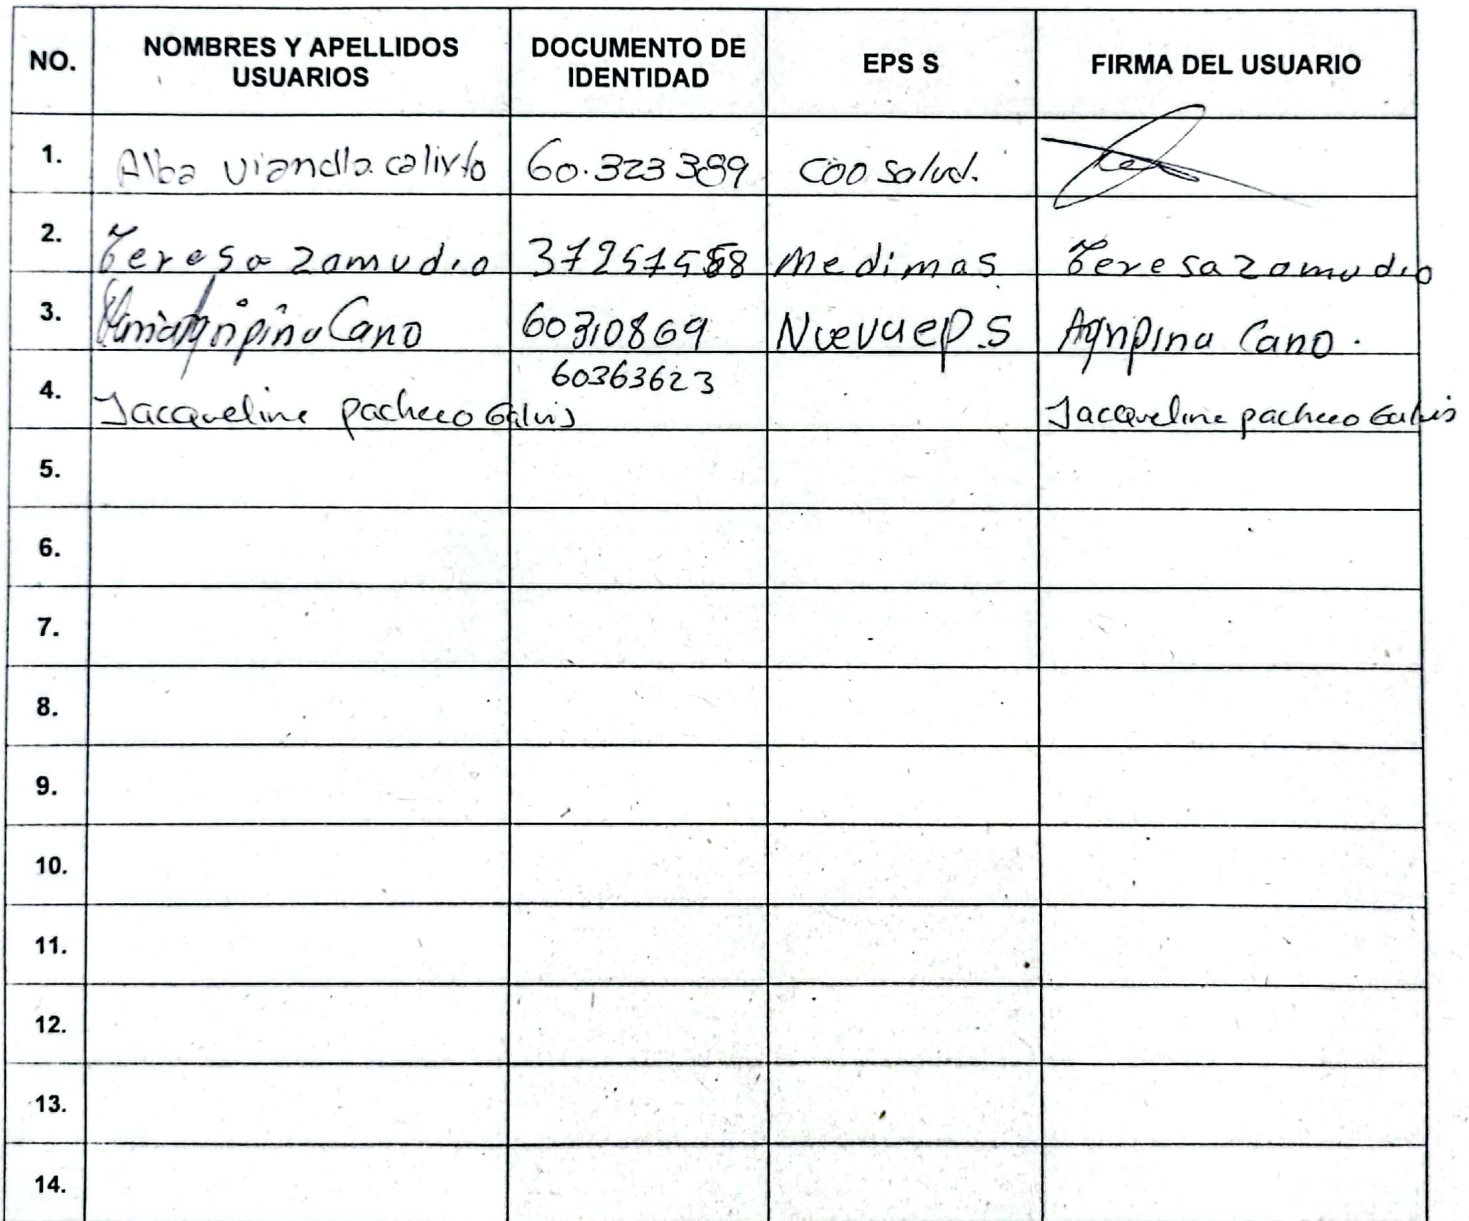 NO. NOMBRES Y APELLIDOS USUARIOS DOCUMENTO DE IDENTIDAD EPS S FIRMA DEL USUARIO
1. Alba 60.323389 coosalud.
2. Teresa Zamudio Medimas Teresa Zamudio
3. Agripina Cano 60310869 NuevaeP.S Agripina Cano.
4. Jacqueline pacheco Galvis 60363623 Jacqueline pacheco Galvis
5.
6.
7.
8.
9.
10.
11.
12.
13.
14.